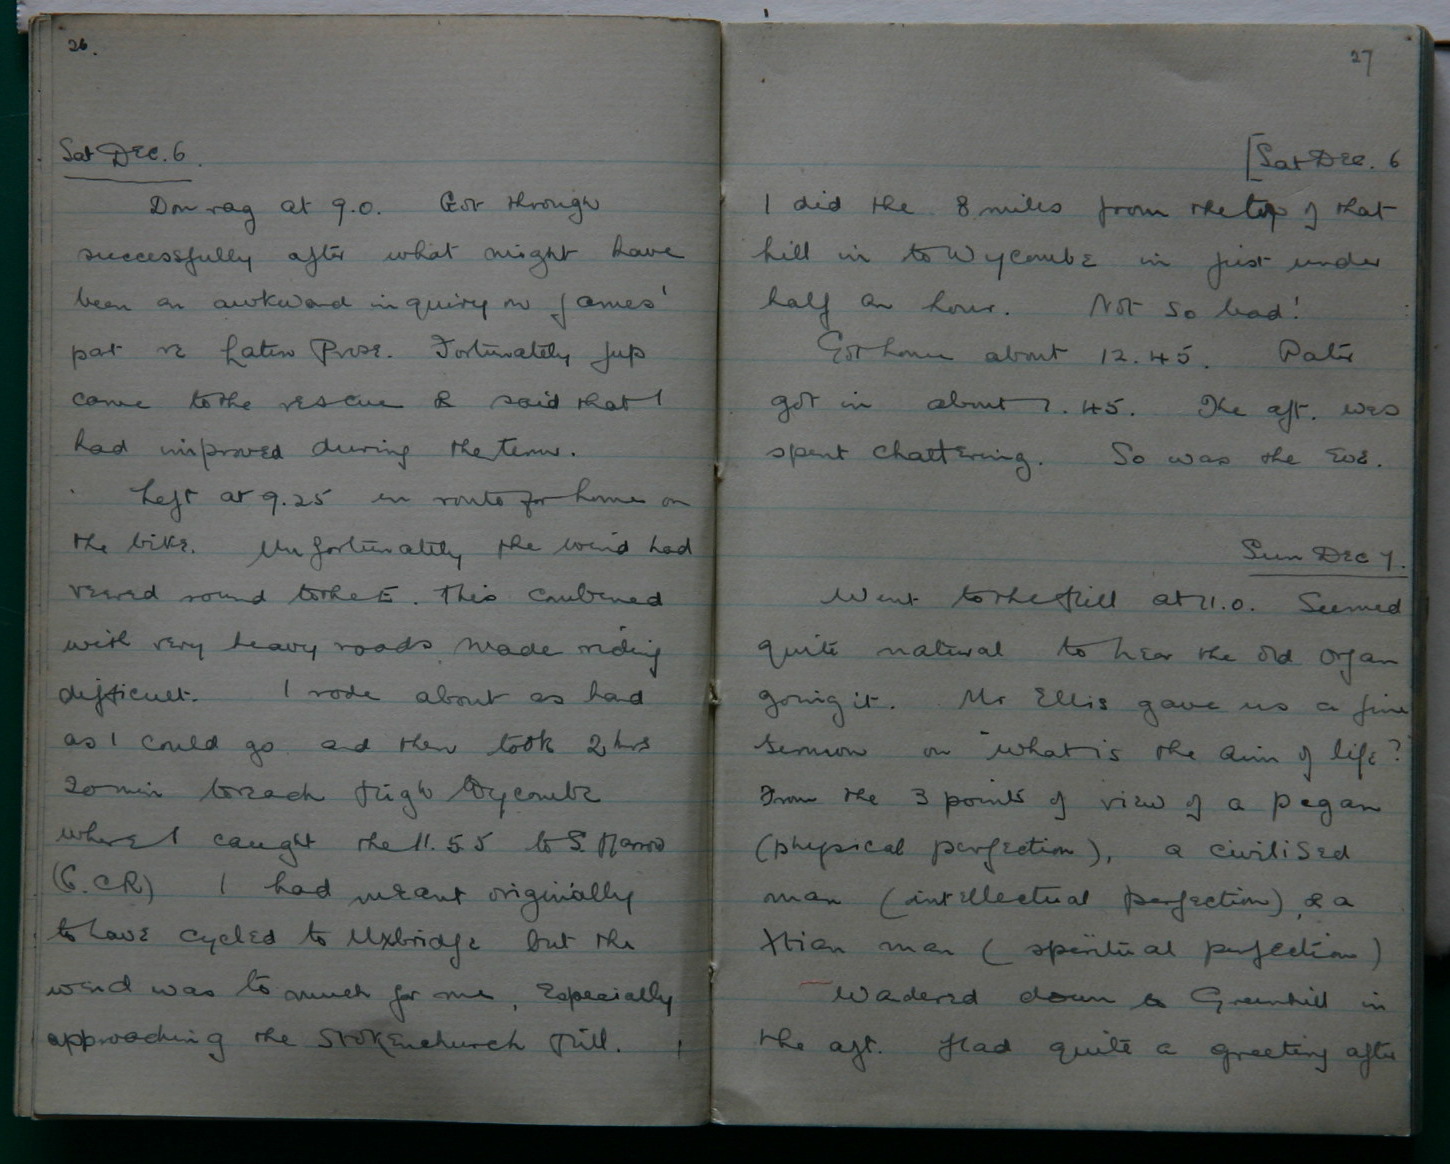 26.
Sat Dec. 6.
Don rag at 9.0. Got through
successfully after what might have
been an awkward inquiry on James'
part re Latin Prose. Fortunately Jup
came to the rescue & said that I
had improved during the term.
Left at 9.25 en route for home on
the bike. Unfortunately the wind had
veered round to the E. This combined
with very heavy roads made riding
difficult. I rode about as hard
as I could go and then took 2 hrs
20 min to reach High Wycombe
where I caught the 11.55 to S. Harrow
(G.C.R) I had meant originally
to have cycled to Uxbridge but the
wind was to much for me, especially
approaching the Stokenchurch Hill.
27
[Sat Dec. 6
I did the 8 miles from the top of that
hill in to Wycombe in just under
half an hour. Not so bad!
Got home about 12.45. Pater
got in about 1.45. The aft. was
spent chattering. So was the eve.
Sun Dec 7.
Went to the Hill at 11.0. Seemed
quite natural to hear the old organ
going it. Mr Ellis gave us a fine
sermon on "what is the aim of life?
From the 3 points of view of a pagan
(physical perfection), a civilised
man (intellectual perfection), & a
Xtian man (spiritual perfection)
Wadered down to Greenhill in
the aft. Had quite a greeting after